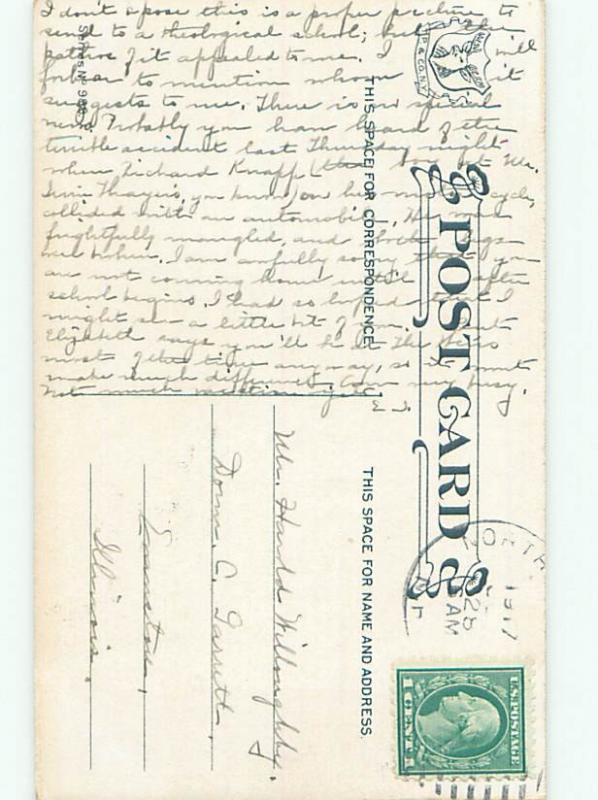 I don't spose this is a proper picture to
send to a theological school; but the
pathos of it appealed to me. I will
forbear to mention whom it
suggests to me. There is no special
news. Probably you have heard of the
terrible accident last Thursday night
when Richard Knapp (the boy at Mr.
Irvin Thayer's, you know) on his motor cycle,
collided with an automobile. He was
frightfully mangled, and both legs
were broken. I am awfully sorry that you
are not coming home until after
school begins. I had so hoped that I
might see a little bit of you. But
Elizabeth says you'll be at the
most of the time anyway, so it won't
make much difference. Am very busy.
Not much vacation yet. E. J.
SERIES No. 988
P. & CO. N.Y.
POST CARD
THIS SPACE FOR CORRESPONDENCE
THIS SPACE FOR NAME AND ADDRESS.
Mr. Harold Willoughby,
Dorm. C. Garrett,
Evanston,
Illinois.
NORTH
28
AM
1917
U.S. POSTAGE
1 CENT 1